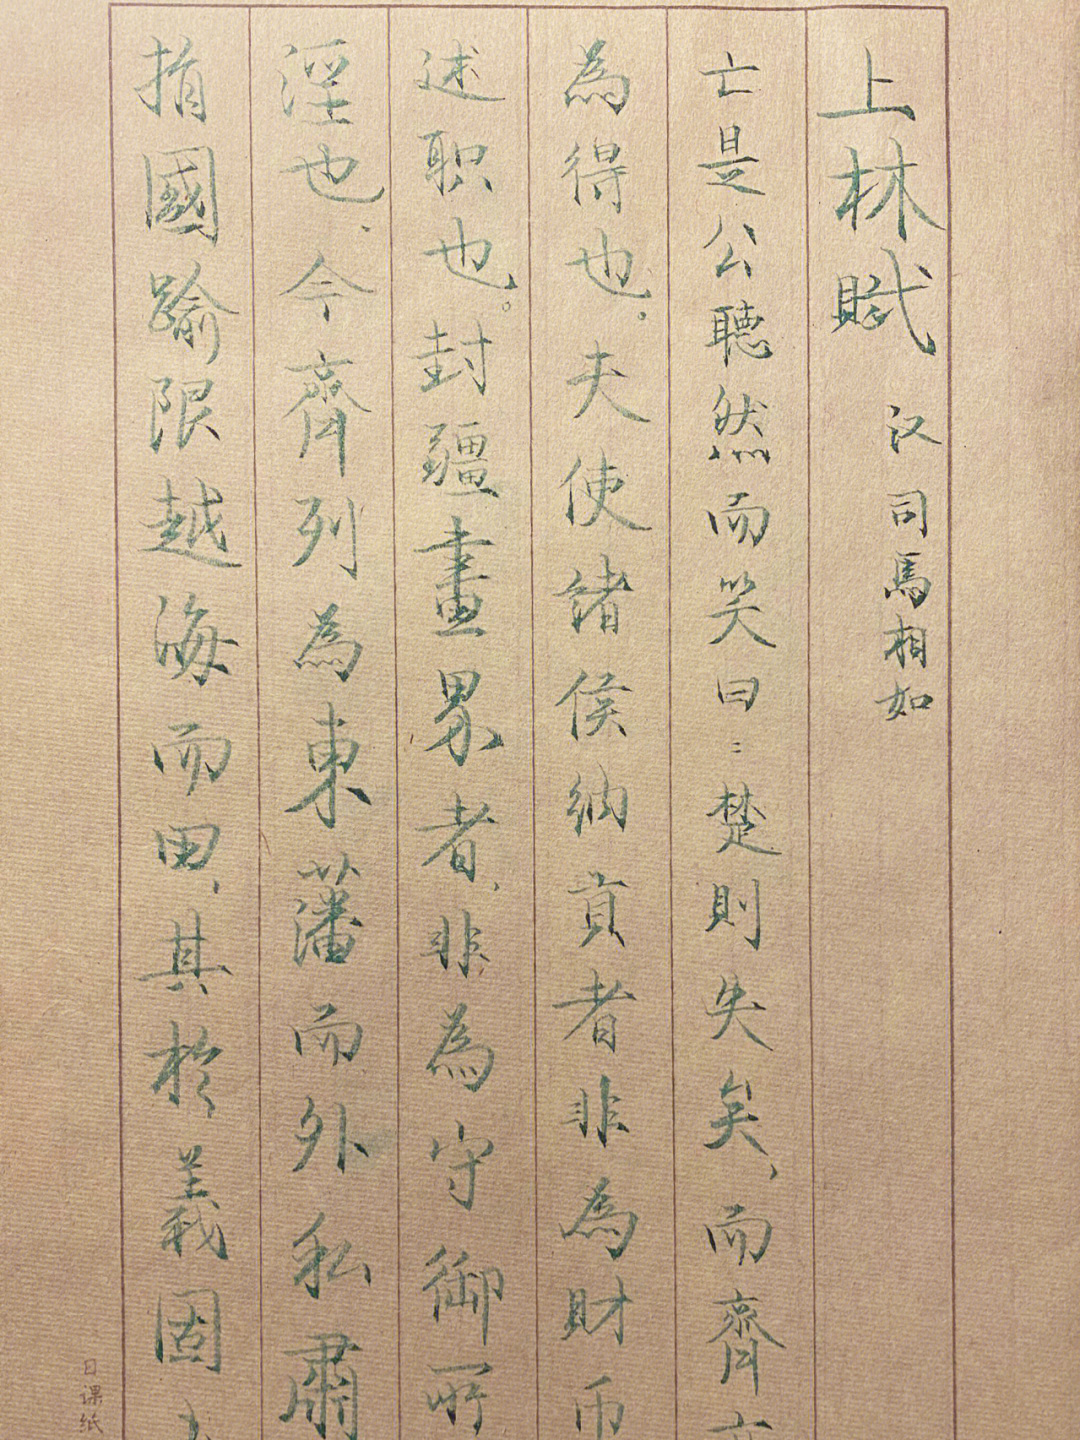 上林賦 汉司馬相如
亡是公聽然而笑曰：楚則失矣，而齊
為得也。夫使緒侯納貢者非為財币
述职也。封疆畫界者，非為守御所
淫也，今齊列為東藩而外私肅
捐國踰限越海而田，其於義固
日课纸